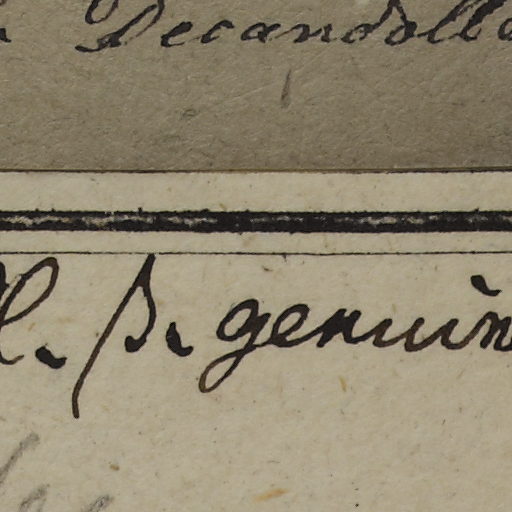 Decandoll
l. β. genuin